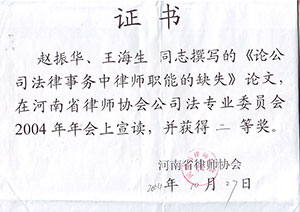 证书
赵振华、王海生 同志撰写的《论公
司法律事务中律师职能的缺失》论文，
在河南省律师协会公司法专业委员会
2004 年年会上宣读，并获得 二 等奖。
河南省律师协会
2004年 10月 27日